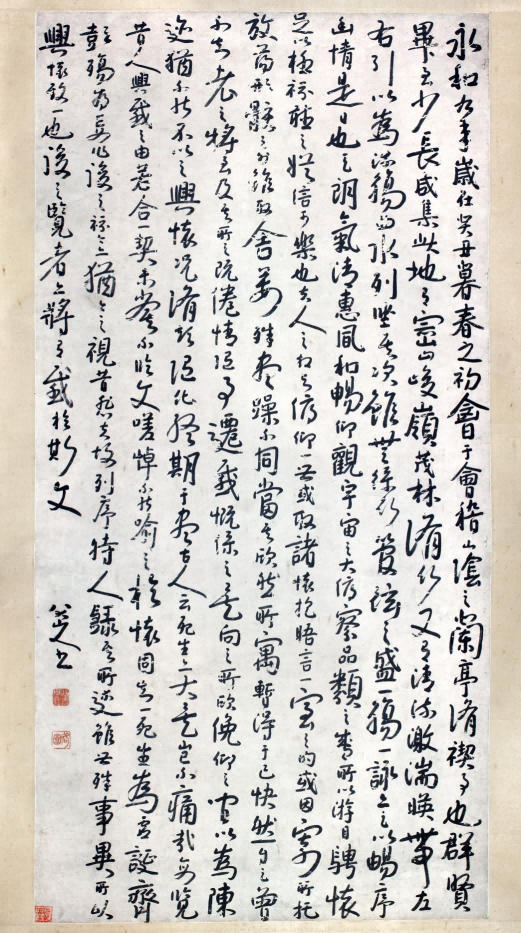 永和九年歲在癸丑暮春之初會于會稽山陰之蘭亭脩禊事也群賢
畢至少長咸集此地有崇山峻嶺茂林脩竹又有清流激湍暎帶左
右引以為流觴曲水列坐其次雖無絲竹管弦之盛一觴一詠亦足以暢序
幽情是日也天朗氣清惠風和暢仰觀宇宙之大俯察品類之盛所以遊目騁懷
足以極視聽之娛信可樂也夫人之相與俯仰一世或取諸懷抱晤言一室之內或因寄所托
放蕩形骸之外雖取舍萬殊靜躁不同當其欣然所寓暫得于己快然自足曾
不知老之將至及其所之既倦情隨事遷感慨係之矣向之所欣俛仰之間以為陳
迹猶不能不以之興懷況脩短隨化終期于盡古人云死生亦大矣豈不痛哉每覽
昔人興感之由若合一契未嘗不臨文嗟悼不能喻之於懷固知一死生為虛誕齊
彭殤為妄作後之視今亦猶今之視昔悲夫故列序時人錄其所述雖世殊事異所以
興懷致一也後之覽者亦將有感於斯文
八大山人書